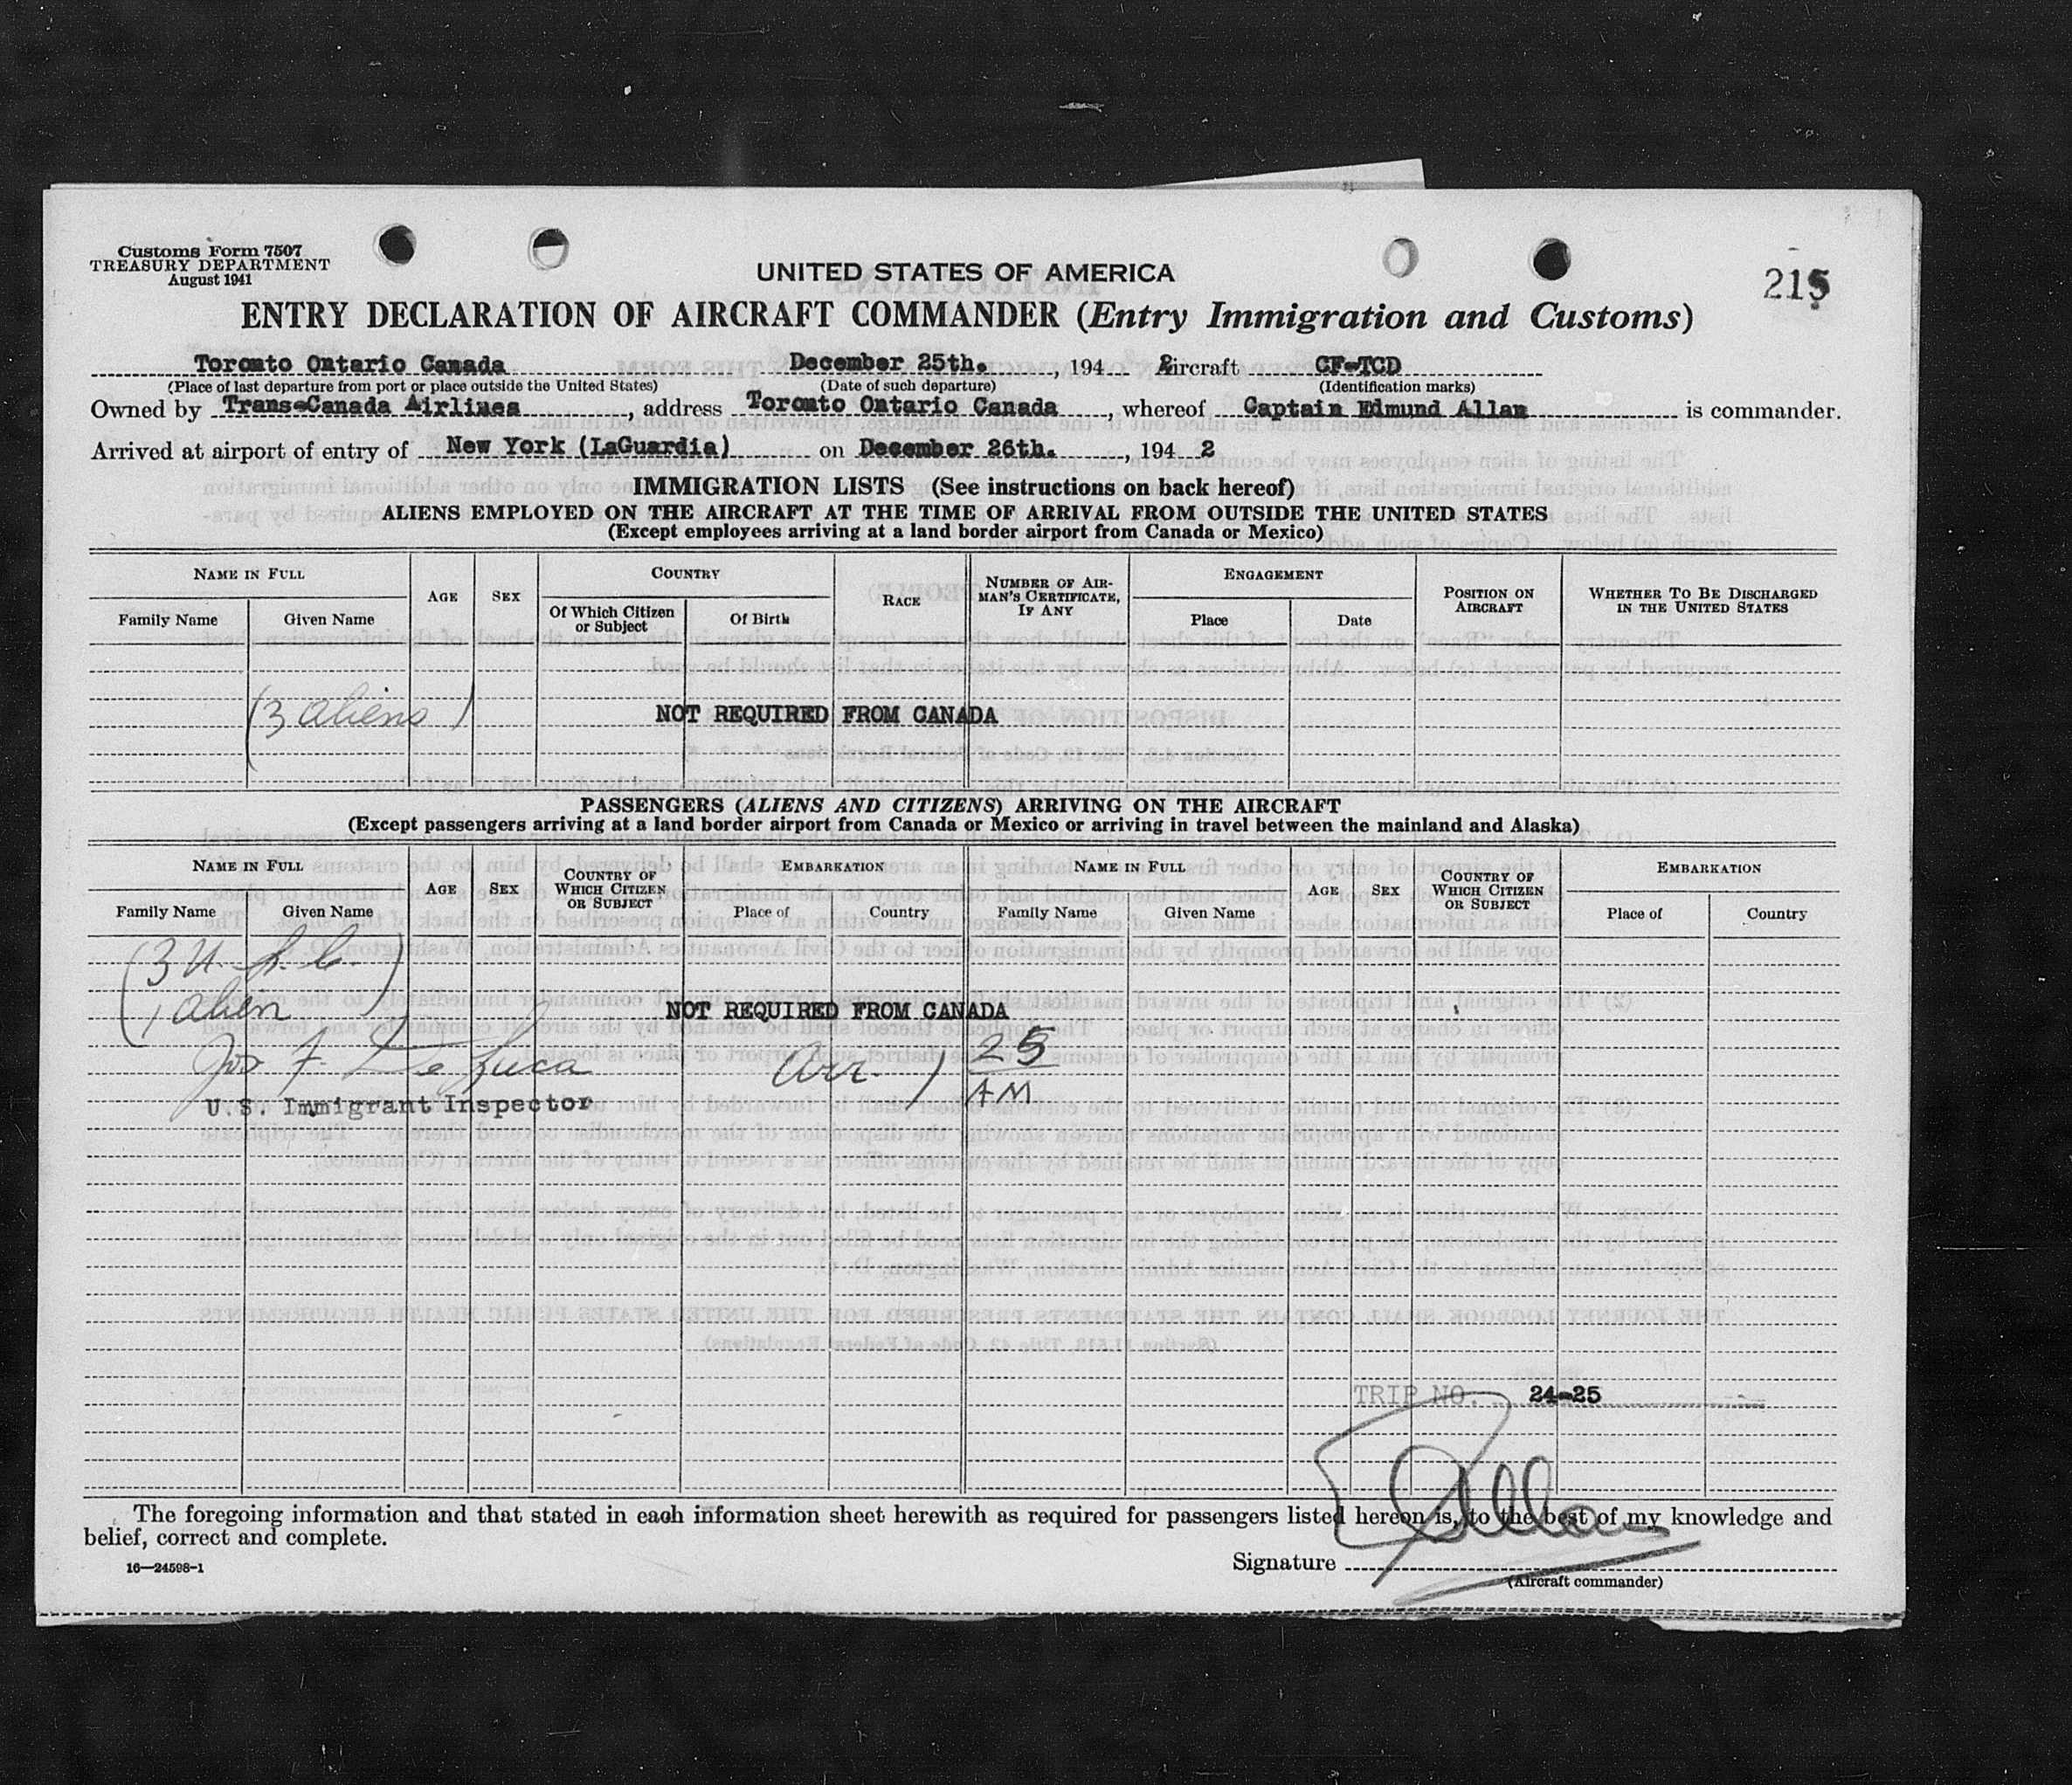 Customs Form 7507
TREASURY DEPARTMENT
August 1941
UNITED STATES OF AMERICA
215
ENTRY DECLARATION OF AIRCRAFT COMMANDER (Entry Immigration and Customs)
Toronto Ontario Canada December 25th. , 194 2 Aircraft CF-TCD
(Place of last departure from port or place outside the United States) (Date of such departure) (Identification marks)
Owned by Trans-Canada Airlines , address Toronto Ontario Canada , whereof Captain Edmund Allan is commander.
Arrived at airport of entry of New York (LaGuardia) on December 26th. , 194 2
IMMIGRATION LISTS (See instructions on back hereof)
ALIENS EMPLOYED ON THE AIRCRAFT AT THE TIME OF ARRIVAL FROM OUTSIDE THE UNITED STATES
(Except employees arriving at a land border airport from Canada or Mexico)
NAME IN FULL AGE SEX COUNTRY RACE NUMBER OF AIRMAN'S CERTIFICATE, IF ANY ENGAGEMENT POSITION ON AIRCRAFT WHETHER TO BE DISCHARGED IN THE UNITED STATES
Family Name Given Name Of Which Citizen or Subject Of Birth Place Date
(3 aliens) NOT REQUIRED FROM CANADA
PASSENGERS (ALIENS AND CITIZENS) ARRIVING ON THE AIRCRAFT
(Except passengers arriving at a land border airport from Canada or Mexico or arriving in travel between the mainland and Alaska)
NAME IN FULL AGE SEX COUNTRY OF WHICH CITIZEN OR SUBJECT EMBARKATION NAME IN FULL AGE SEX COUNTRY OF WHICH CITIZEN OR SUBJECT EMBARKATION
Family Name Given Name Place of Country Family Name Given Name Place of Country
(3 U.S.C.
1 alien)
NOT REQUIRED FROM CANADA
Jos F. De Luca Arr. 1 25 AM
U.S. Immigrant Inspector
TRIP NO. 24-25
The foregoing information and that stated in each information sheet herewith as required for passengers listed hereon is, to the best of my knowledge and
belief, correct and complete.
16—24598-1
Signature Allan
(Aircraft commander)